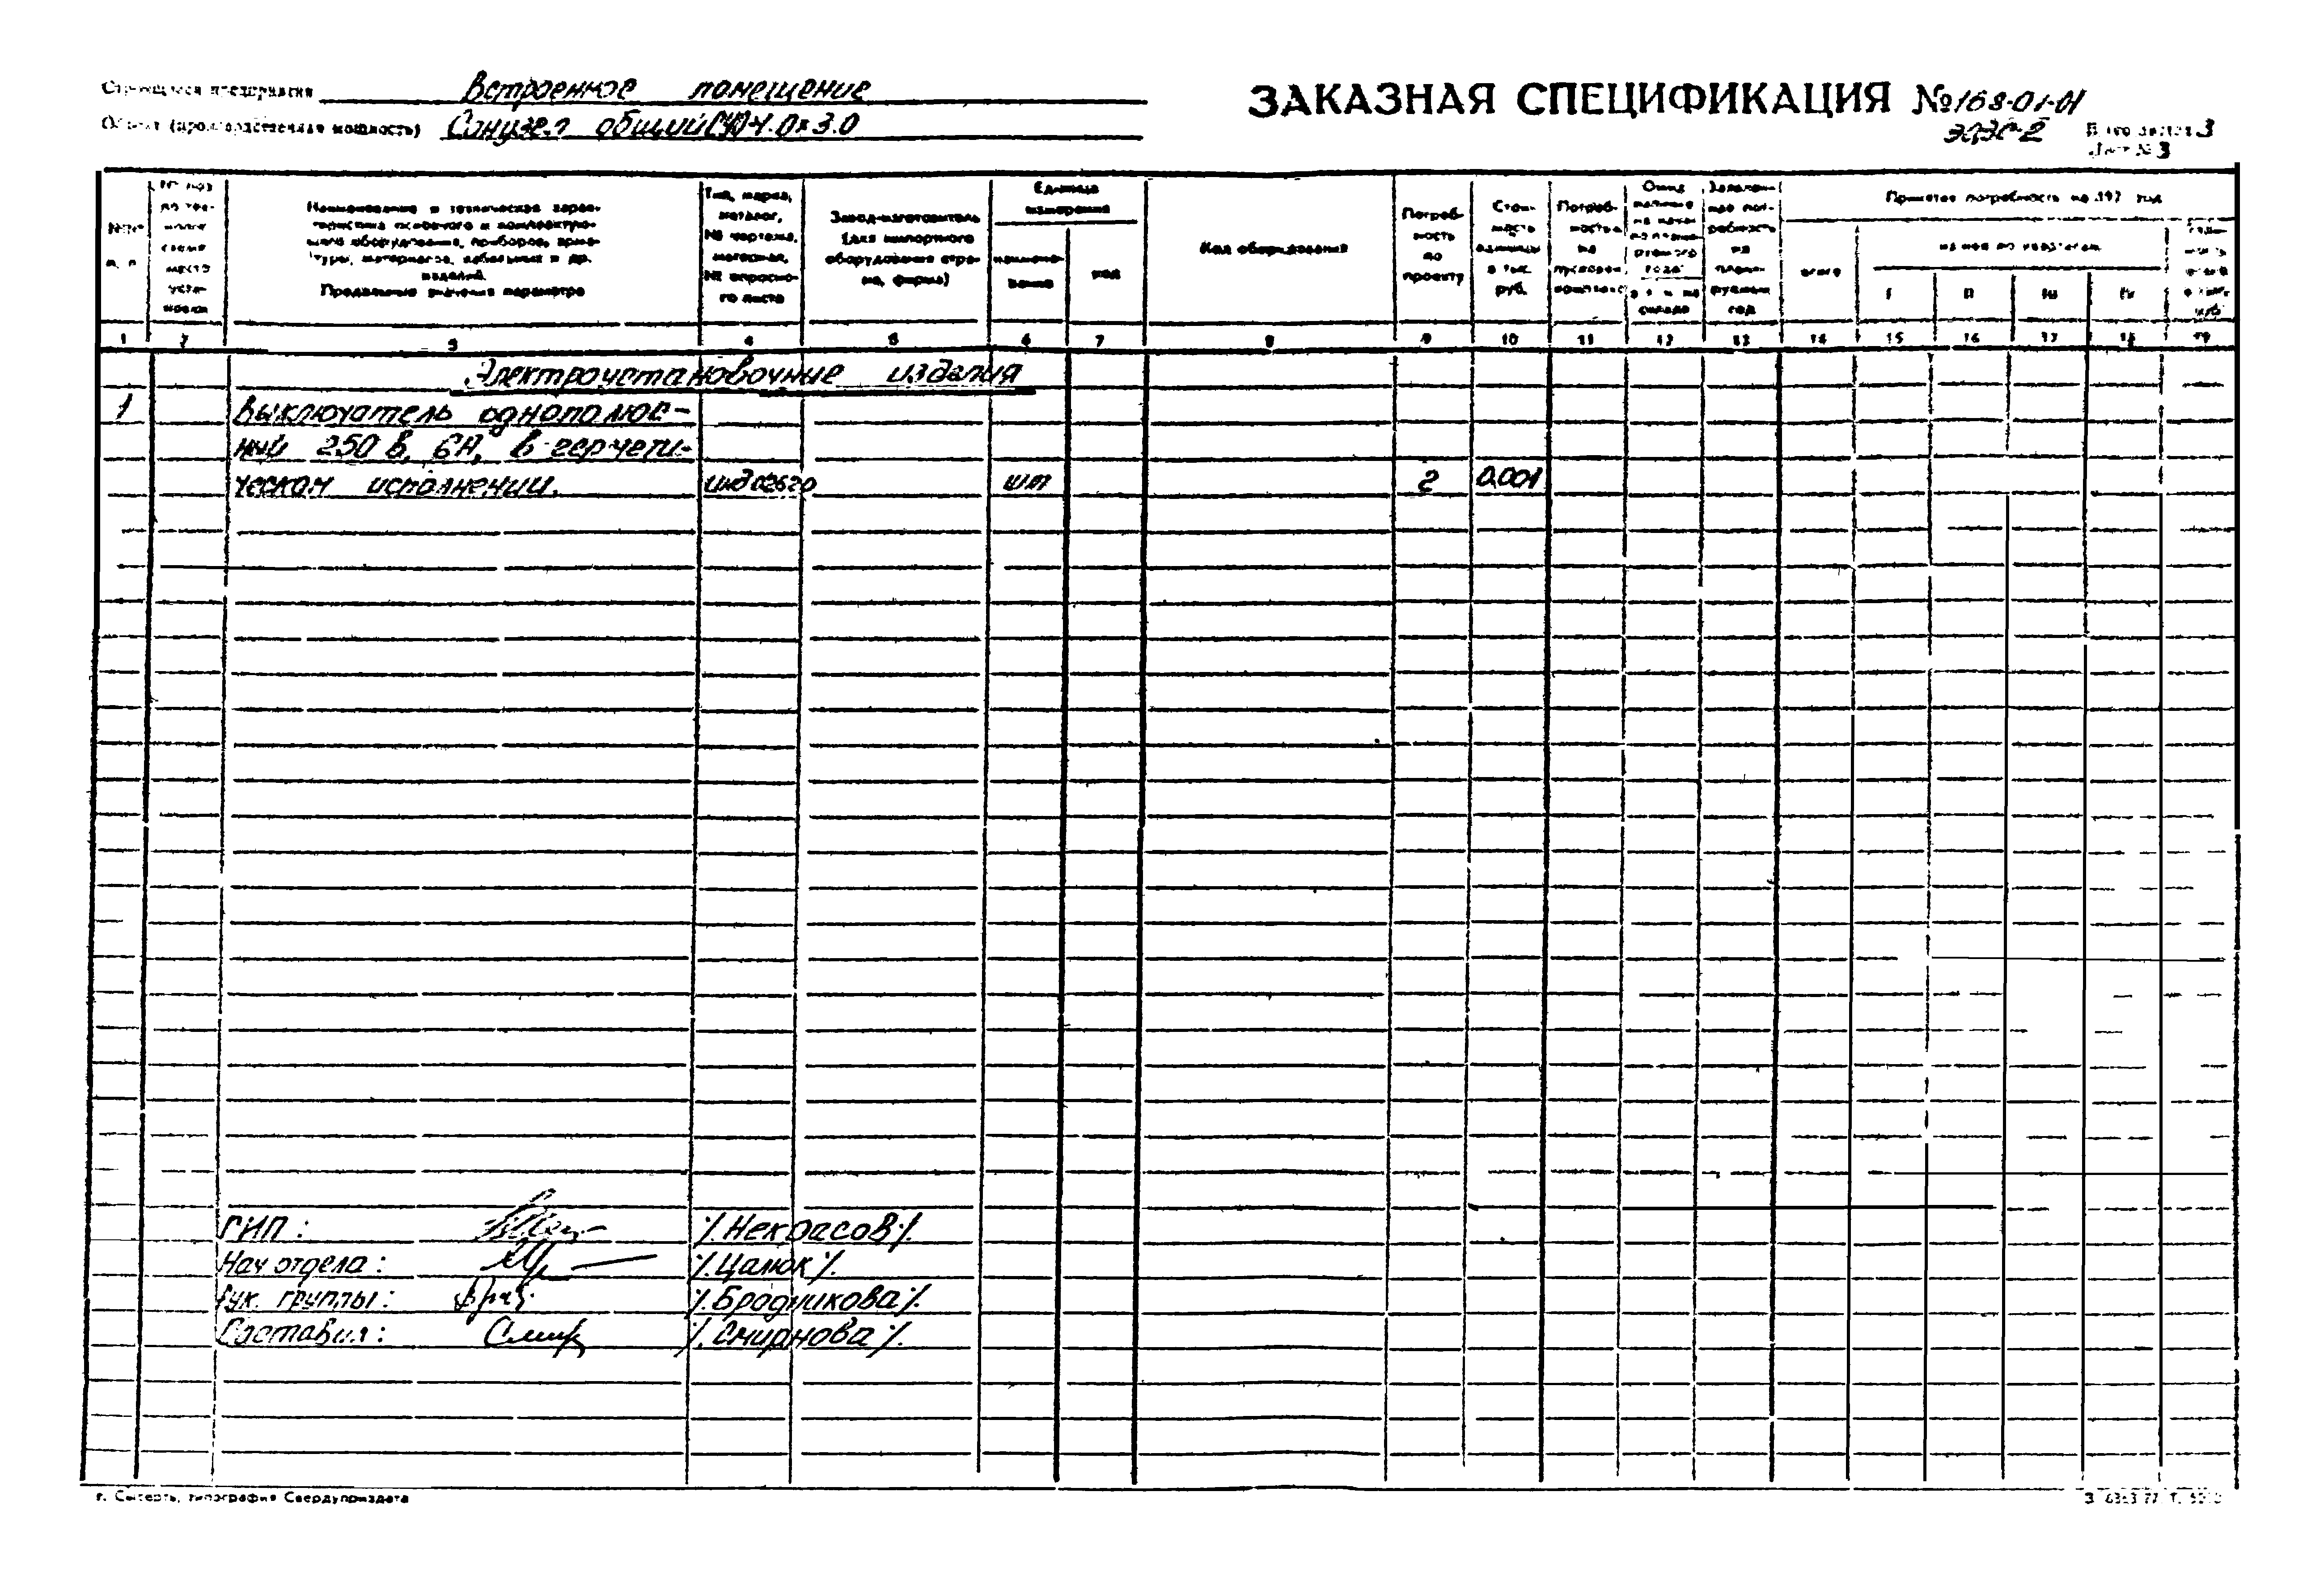 Строящееся предприятие Встроенное помещение
Объект (производственная мощность) Санузел общий 4.0×3.0
ЗАКАЗНАЯ СПЕЦИФИКАЦИЯ №168-01-01
Всего листов 3
Лист № 3
№№ п. п
№ поз. по технолог. схеме, место установки
Наименование и техническая характеристика основного и комплектующего оборудования, приборов, арматуры, материалов, кабельных и др. изделий.
Предельные значения параметра
Тип, марка, каталог, № чертежа, материал, № опросного листа
Завод-изготовитель (для импортного оборудования страна, фирма)
Единица измерения
наименование
код
Код оборудования
Потребность по проекту
Стоимость единицы в тыс. руб.
Потребность на пусковой комплекс
Ожид. наличие на начало планируемого года, в т. ч. на складе
Заявленная потребность на планируемый год
Принятая потребность на 197 год
всего
из нее по кварталам
I II III IV
1 2 3 4 5 6 7 8 9 10 11 12 13 14 15 16 17 18 19
Электроустановочные изделия
1 Выключатель однополюс-
ный 250 в, 6А, в гермети-
ческом исполнении. инд 02620 шт 2 0.001
ГИП: ⁒ Некрасов ⁒
Нач отдела: ⁒ Цалюк ⁒
Рук. группы: ⁒ Бродникова ⁒
Составил: ⁒ Смирнова ⁒
г. Сысерть, типография Свердуприздата